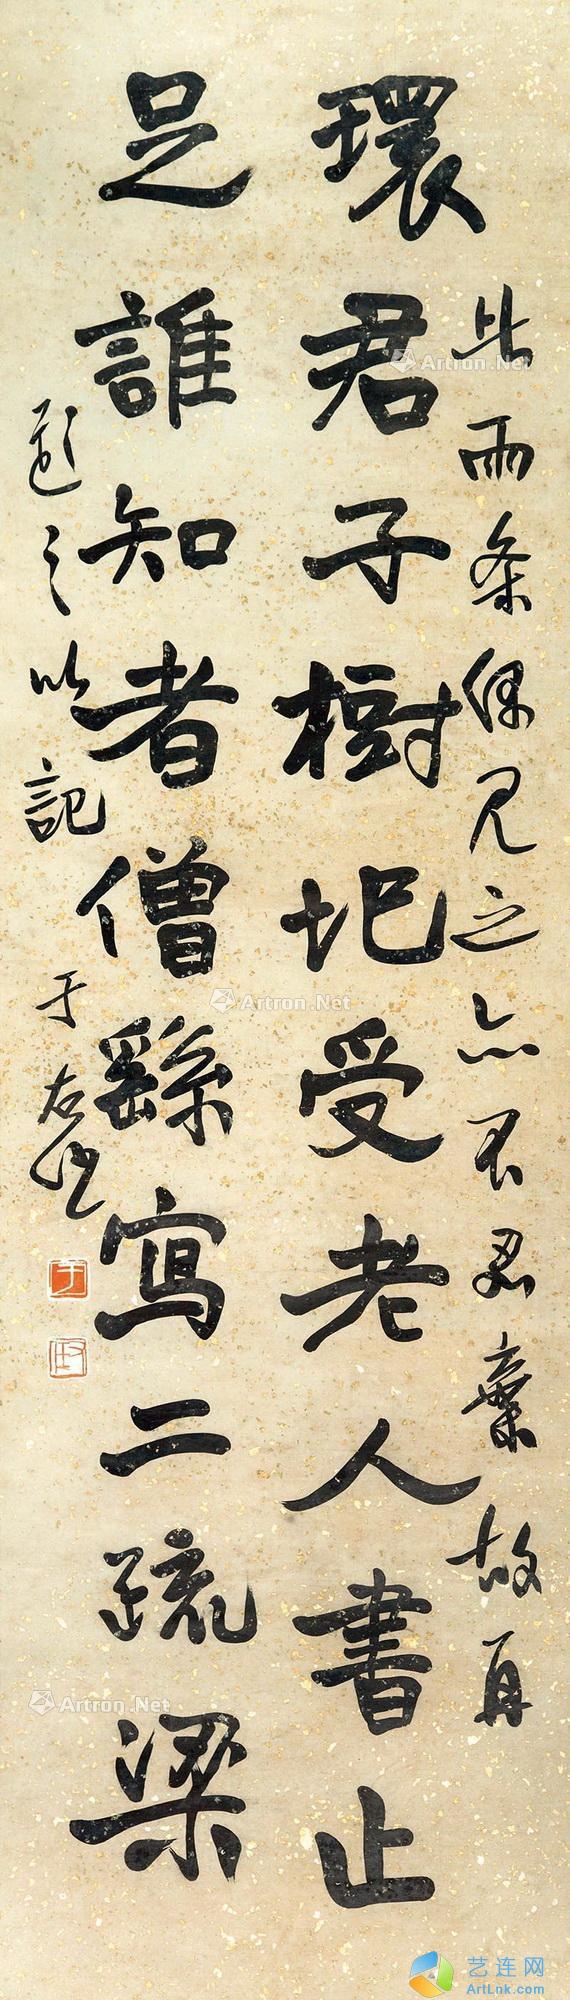 此兩条偶見之亦不忍棄故再
環君子樹圯受老人書止
足誰知者僧繇寫二疏梁
題之以記 于右任
于
Artron.Net
Artron.Net
Artron.Net
艺连网
ArtLnk.com